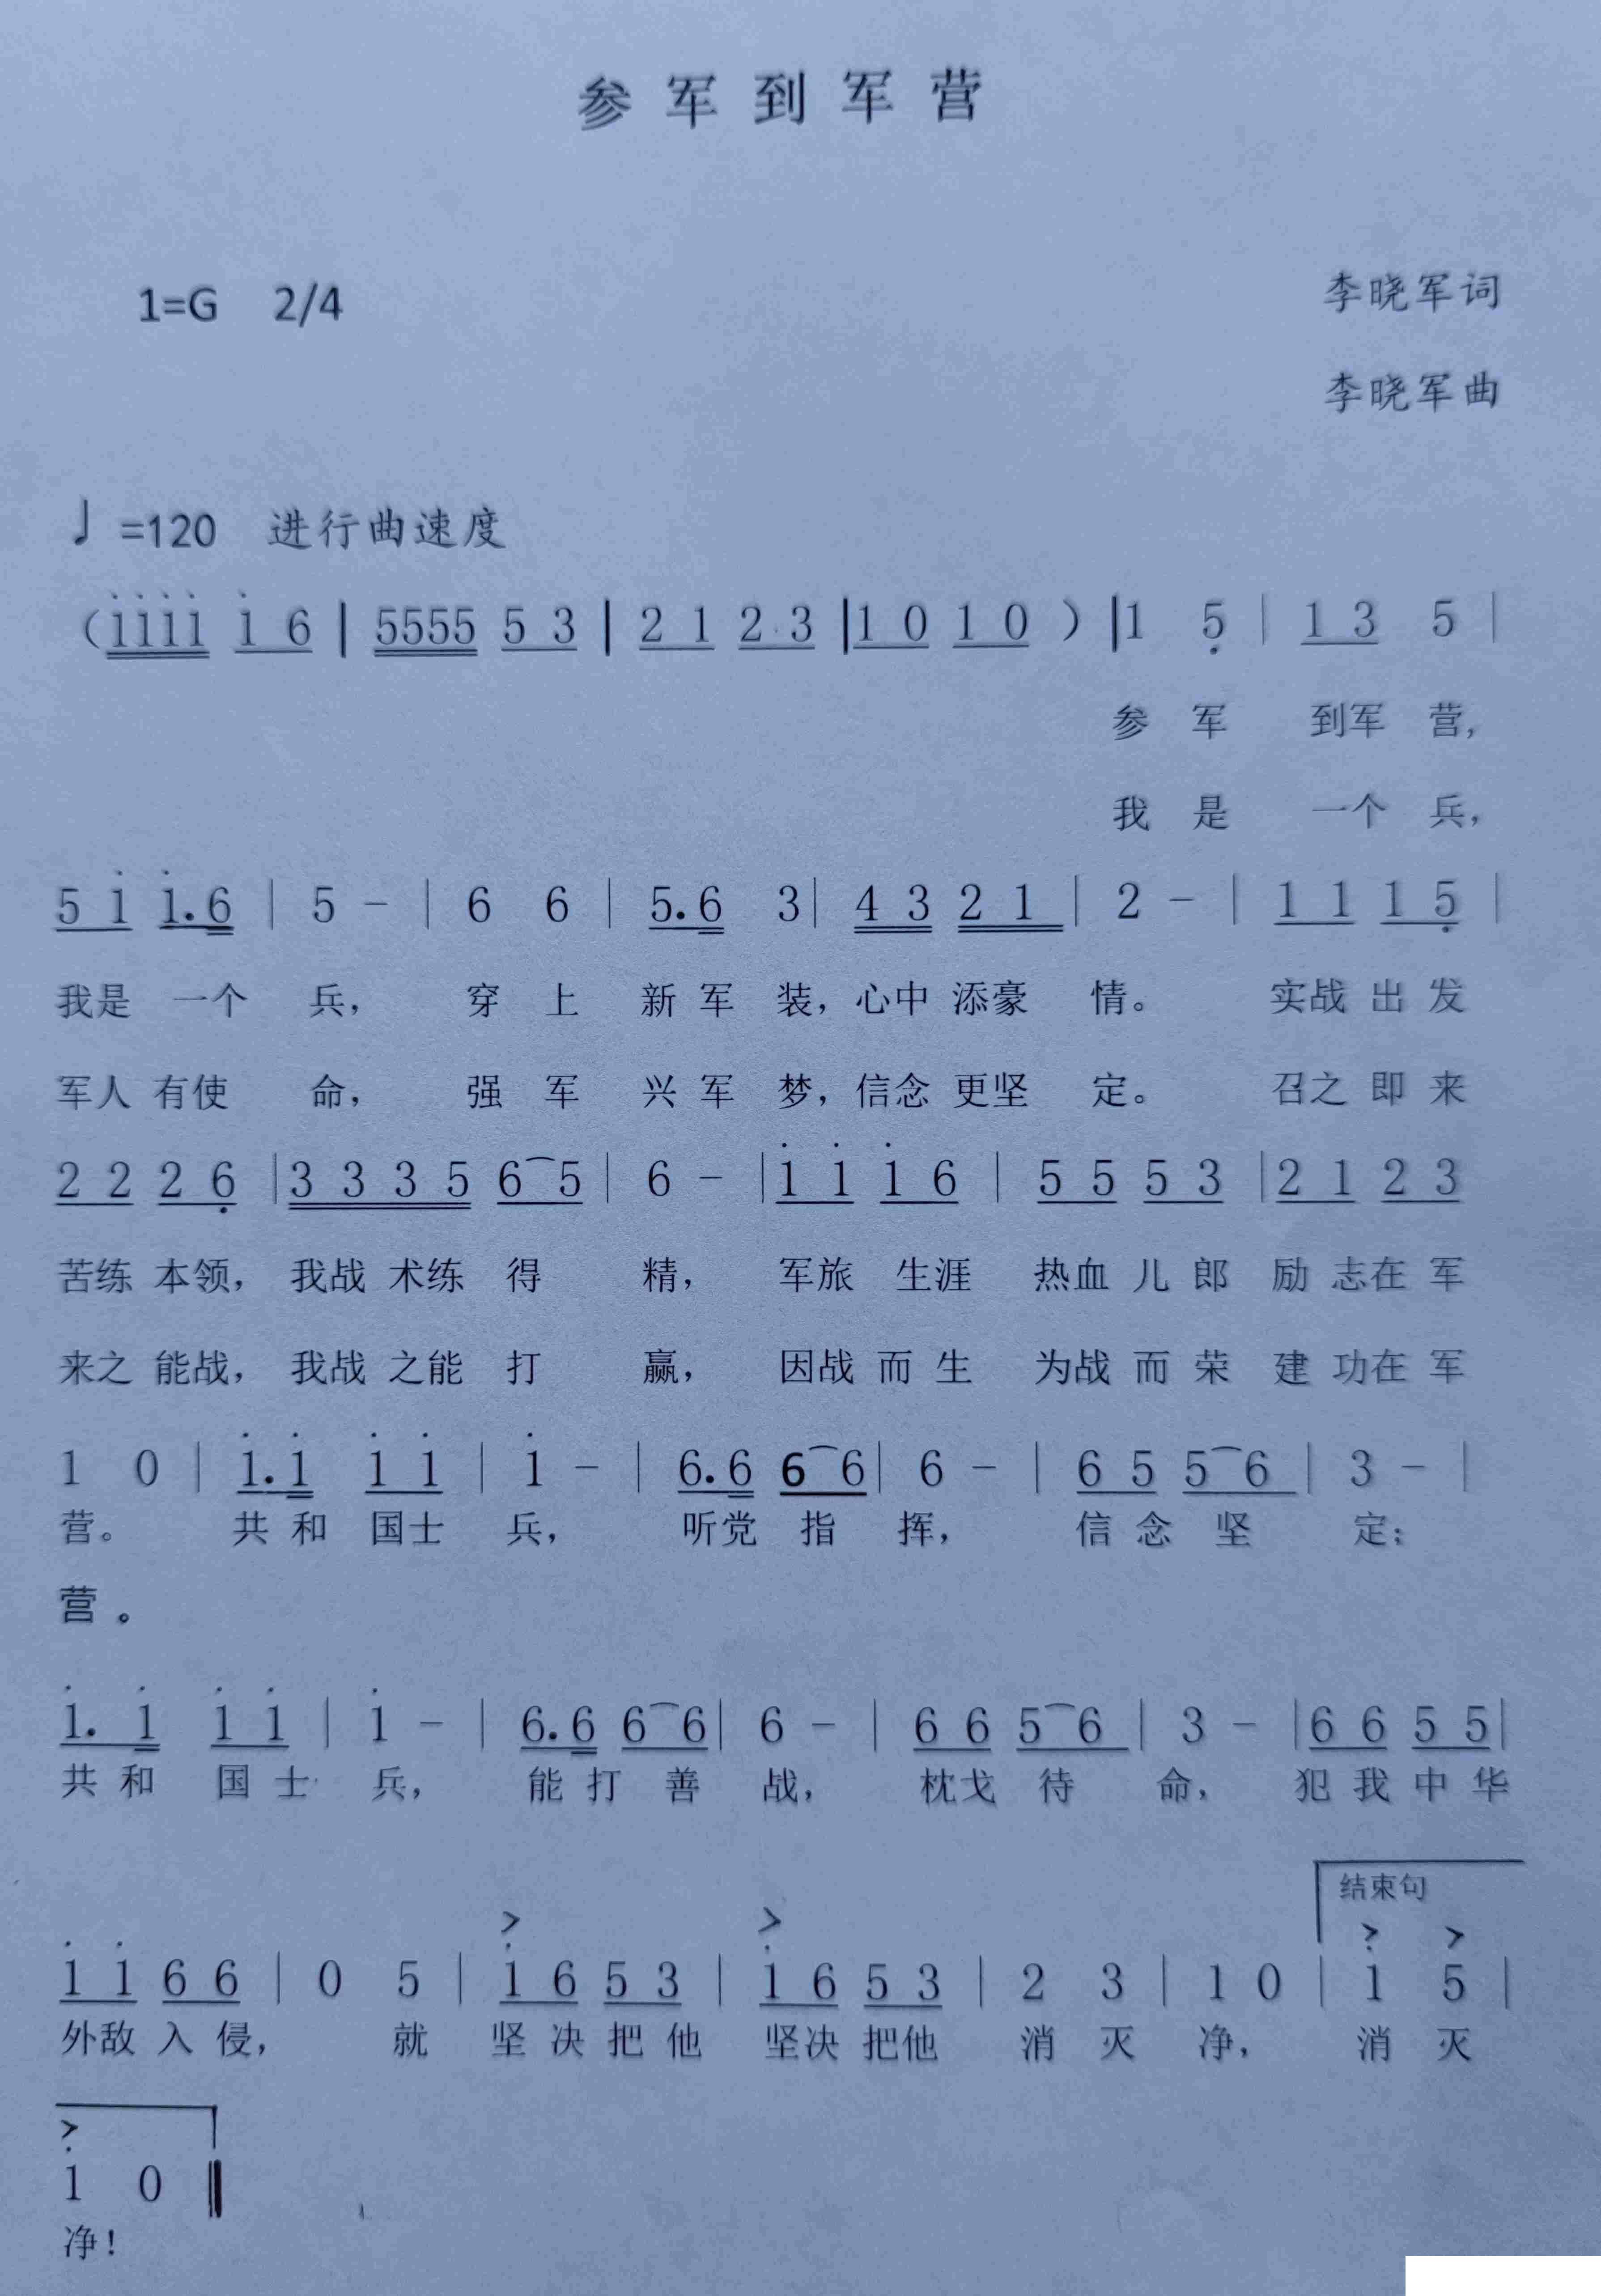 参军到军营
1=G 2/4 李晓军词
李晓军曲
♩=120 进行曲速度
（i̇i̇i̇i̇ i̇ 6 | 5555 5 3 | 2 1 2 3 | 1 0 1 0 ）| 1 5̣ | 1 3 5 |
参 军 到军 营，
我 是 一个 兵，
5 i̇ i̇. 6 | 5 - | 6 6 | 5. 6 3 | 4 3 2 1 | 2 - | 1 1 1 5̣ |
我是 一个 兵， 穿 上 新 军 装，心中 添豪 情。 实战 出 发
军人 有使 命， 强 军 兴 军 梦，信念 更坚 定。 召之 即 来
2 2 2 6̣ | 3 3 3 5 6⌒5 | 6 - | i̇ i̇ i̇ 6 | 5 5 5 3 | 2 1 2 3
苦练 本领， 我战 术练 得 精， 军旅 生涯 热血 儿 郎 励 志在 军
来之 能战， 我战 之能 打 赢， 因战 而 生 为战 而 荣 建 功在 军
1 0 | i̇. i̇ i̇ i̇ | i̇ - | 6. 6 6⌒6 | 6 - | 6 5 5⌒6 | 3 - |
营。 共 和 国士 兵， 听党 指 挥， 信 念 坚 定；
营。
i̇. i̇ i̇ i̇ | i̇ - | 6. 6 6⌒6 | 6 - | 6 6 5⌒6 | 3 - | 6 6 5 5 |
共 和 国 士 兵， 能 打 善 战， 枕戈 待 命， 犯 我 中 华
结束句
i̇ i̇ 6 6 | 0 5 | i̇ 6 5 3 | i̇ 6 5 3 | 2 3 | 1 0 | i̇ 5 |
外敌 入 侵， 就 坚 决 把 他 坚决 把他 消 灭 净， 消 灭
i̇ 0 ‖
净！